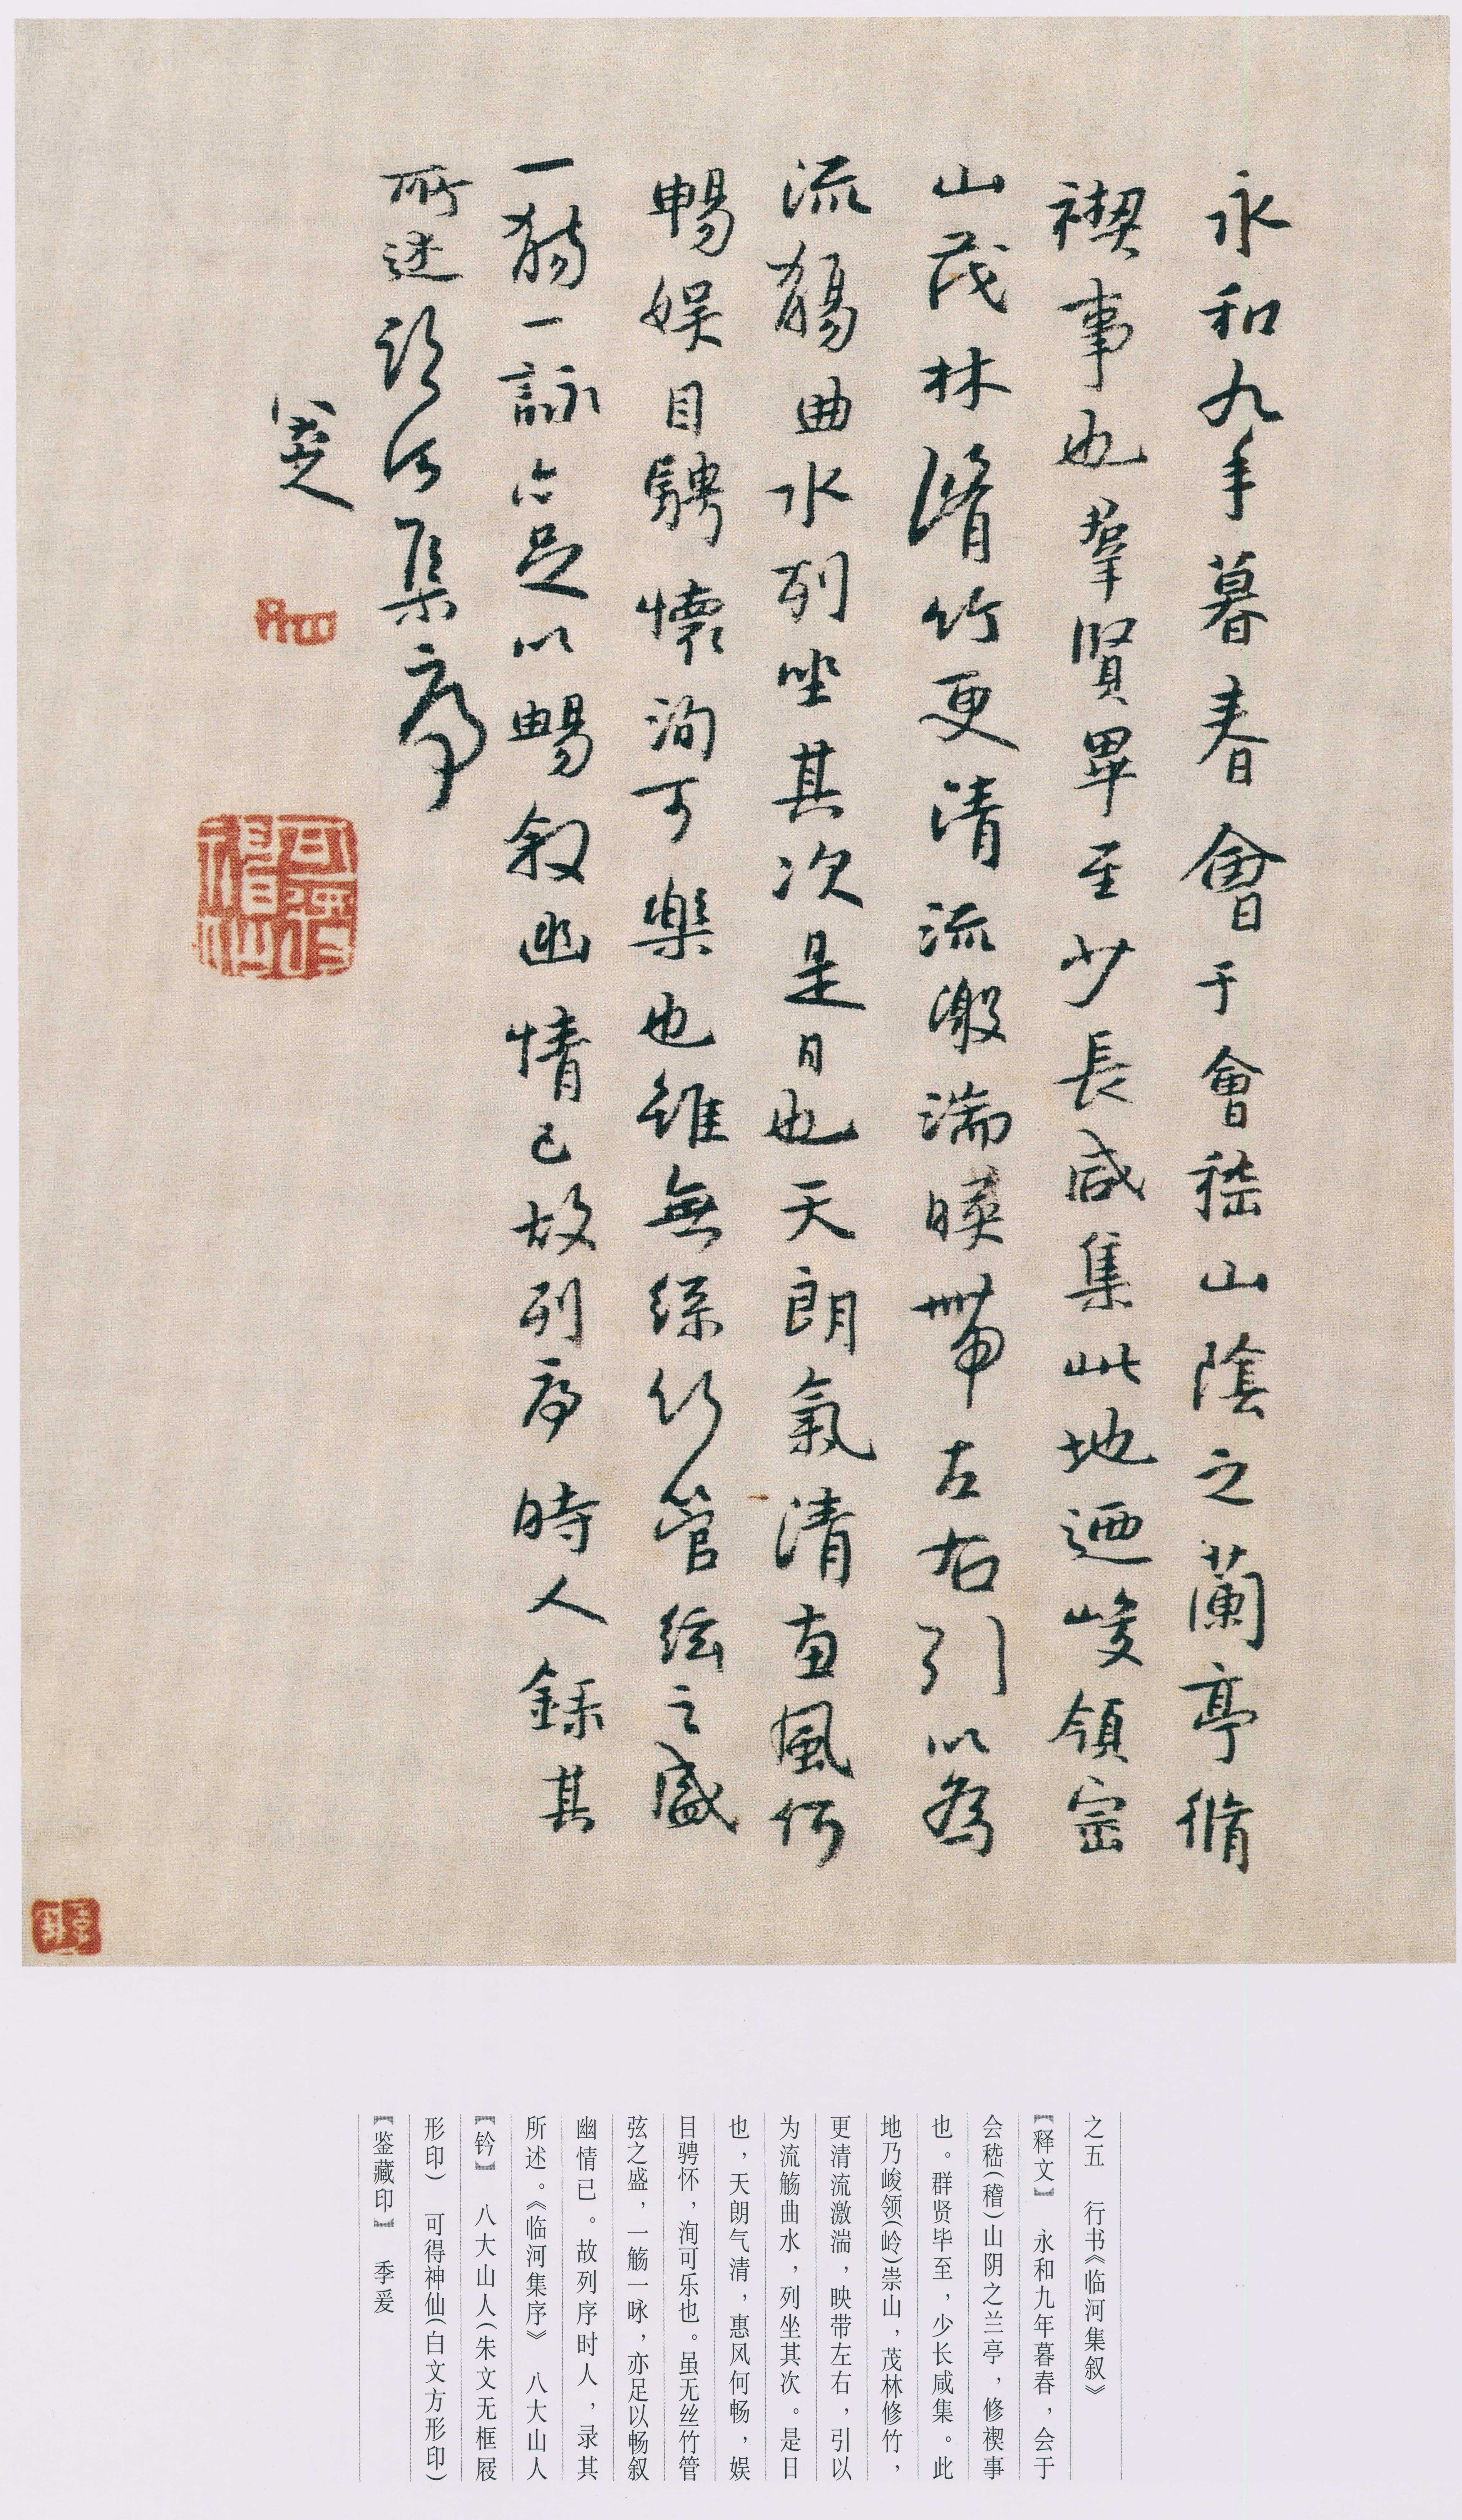 永和九年暮春會于會嵇山陰之蘭亭脩
禊事也羣賢畢至少長咸集此地迺峻領崇
山茂林脩竹更清流激湍暎帶左右引以為
流觴曲水列坐其次是日也天朗氣清惠風何
暢娛目騁懷洵可樂也雖無絲竹管絃之盛
一觴一詠亦足以暢敘幽情已故列序時人錄其
所述臨河集序
八大山人
可得神仙
之五 行书《临河集叙》
【释文】 永和九年暮春，会于
会嵇(稽)山阴之兰亭，修禊事
也。群贤毕至，少长咸集。此
地乃峻领(岭)崇山，茂林修竹，
更清流激湍，映带左右，引以
为流觞曲水，列坐其次。是日
也，天朗气清，惠风何畅，娱
目骋怀，洵可乐也。虽无丝竹管
弦之盛，一觞一咏，亦足以畅叙
幽情已。故列序时人，录其
所述。《临河集序》 八大山人
【钤】 八大山人(朱文无框屐
形印) 可得神仙(白文方形印)
【鉴藏印】 季爰